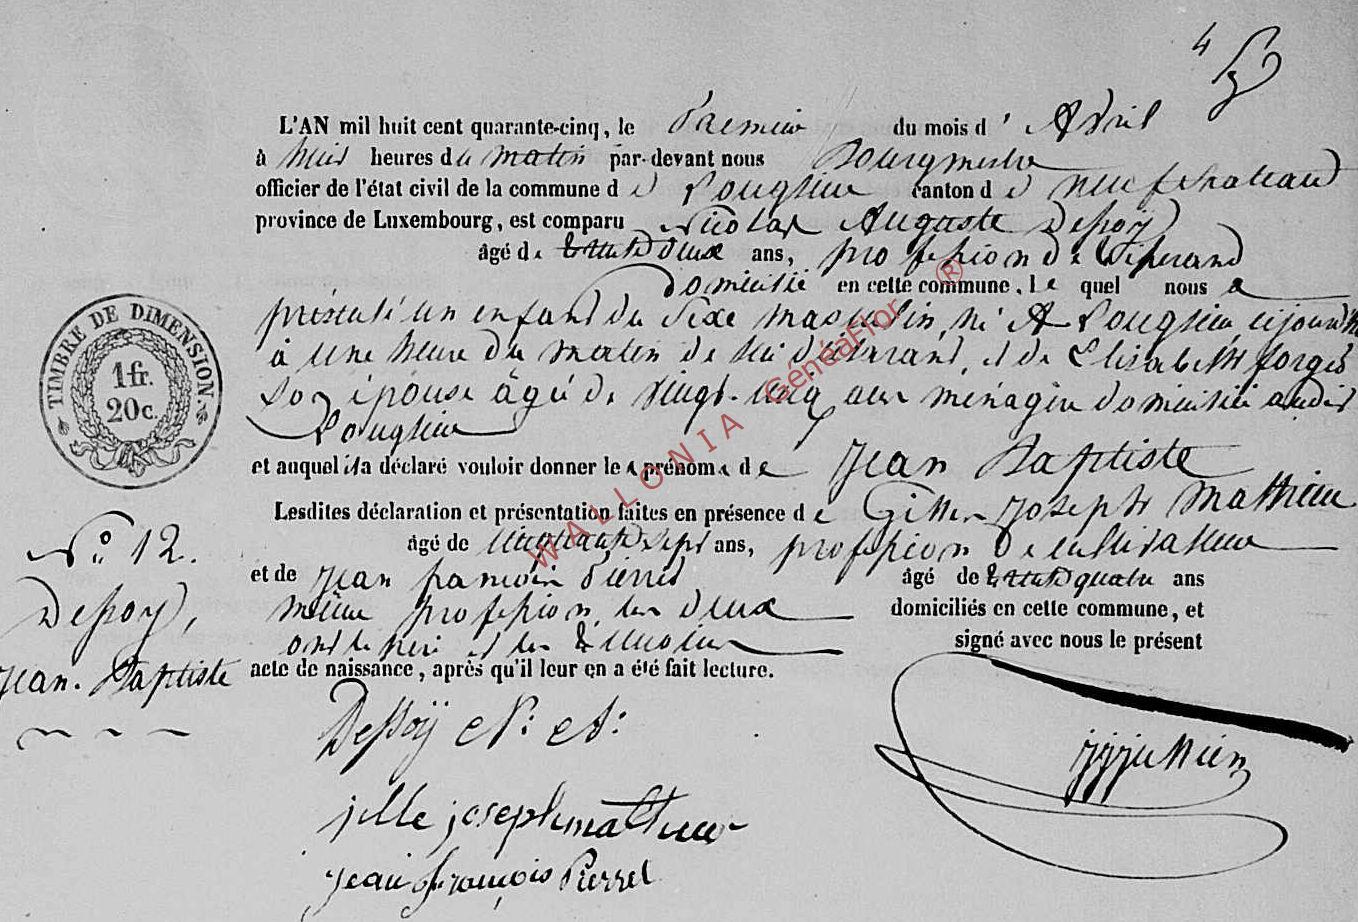 4
L'AN mil huit cent quarante-cinq, le Premier du mois d'Avril
à huit heures du matin par-devant nous Bourgmestre
officier de l'état civil de la commune de Longlier canton de neufchateau
province de Luxembourg, est comparu Nicolas Auguste Dessoÿ
âgé de trente deux ans, profession de tisserand
Domicilié en cette commune, le quel nous a
présenté un enfant du sexe masculin, né A Longlier, cejourd'hui
à une heure du matin de lui déclarant, et de Elisabeth forget
Son épouse âgée de vingt-cinq ans ménagère domiciliée audit
Longlier
et auquel il a déclaré vouloir donner les prénoms de Jean Baptiste
Lesdites déclaration et présentation faites en présence de Gilles Joseph Mathieu
âgé de cinquante sept ans, profession De cultivateur
et de Jean françois Pierret âgé de trente quatre ans
même profession, les deux domiciliés en cette commune, et
ont le père et les témoins signé avec nous le présent
acte de naissance, après qu'il leur en a été fait lecture.
TIMBRE DE DIMENSION
1 fr.
20 c.
N.° 12.
Dessoÿ,
Jean-Baptiste
Dessoÿ N: A:
jille joseph mathieu
jean françois Pierret
WALLONIA GénéaFlor ®